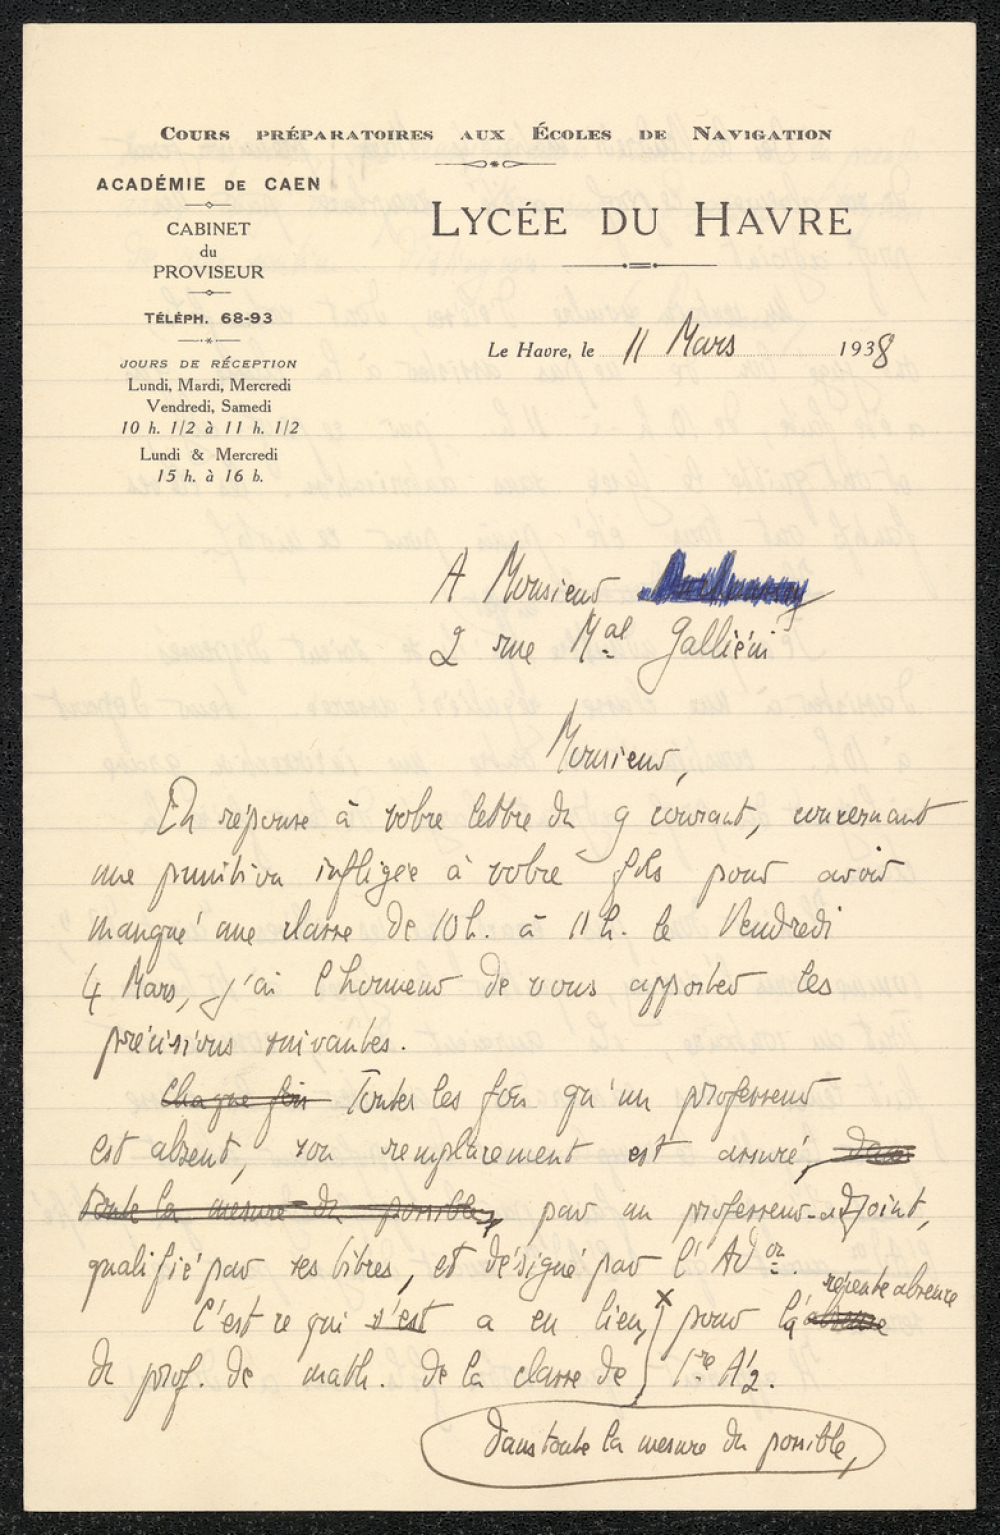 Cours préparatoires aux Écoles de Navigation
ACADÉMIE DE CAEN
CABINET
du
PROVISEUR
TÉLÉPH. 68-93
JOURS DE RÉCEPTION
Lundi, Mardi, Mercredi
Vendredi, Samedi
10 h. 1/2 à 11 h. 1/2
Lundi & Mercredi
15 h. à 16 h.
Lycée du Havre
Le Havre, le 11 Mars 1938
A Monsieur
2 rue Mal Galliéni
Monsieur,
En réponse à votre lettre du 9 courant, concernant
une punition infligée à votre fils pour avoir
manqué une classe de 10 h. à 11 h. le Vendredi
4 Mars, j'ai l'honneur de vous apporter les
précisions suivantes.
Chaque fois Toutes les fois qu'un professeur
est absent, son remplacement est assuré, dans
toute la mesure du possible, par un professeur-adjoint,
qualifié par ses titres, et désigné par l'Ador.
récente absence
C'est ce qui s'est a eu lieu, x pour la absence
du prof. de math. de la classe de 1re A'2.
dans toute la mesure du possible,